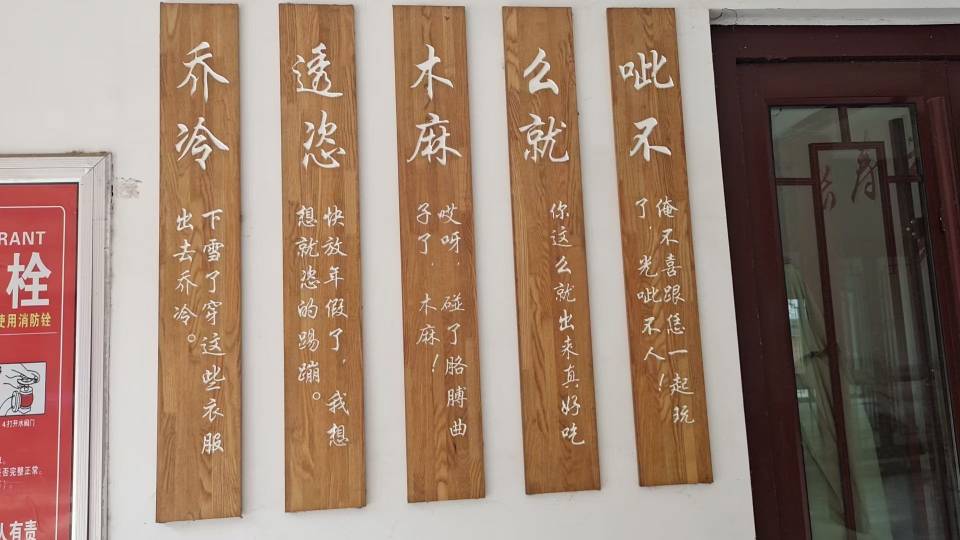 呲不
俺不喜跟恁一起玩
了，光呲不人！
么就
你这么就出来真好吃
木麻
哎呀，碰了胳膊曲
子了，木麻！
透恣
快放年假了，我想
想就恣的踢蹦。
乔冷
下雪了穿这些衣服
出去乔冷。
RANT
栓
使用消防栓
4.打开水阀门
否完整正常。
人有责